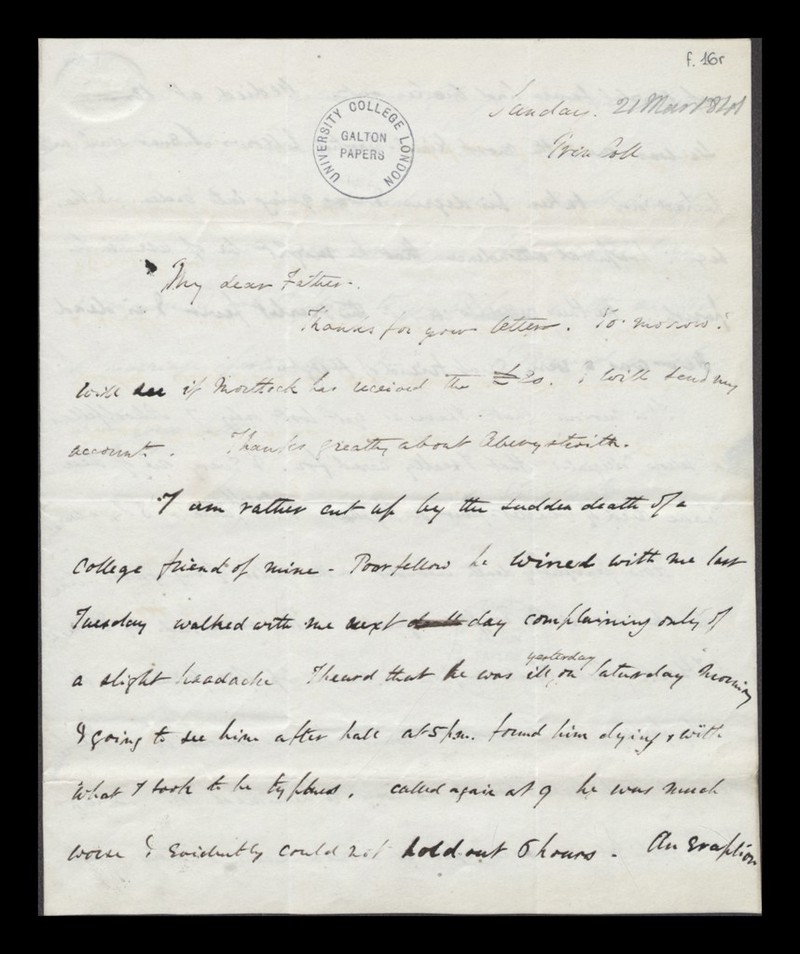 f. 16r
UNIVERSITY COLLEGE LONDON
GALTON
PAPERS
Sunday. 21 March 1841
Trin Coll
My dear Father.
Thanks for your letters. To-morrow I
will see if Mortlock has received the £20. I will send my
account. Thanks greatly about Aberystwith.
I am rather cut up by the sudden death of a
College friend of mine - Poor fellow he wined with me last
Tuesday walked with me next day complaining only of
a slight headache I heard that he was ill yesterday on Saturday Morning
& going to see him after hall at 5 p.m. found him dying & with
what I took to be typhus. called again at 9 he was much
worse & evidently could not hold out 6 hours. An eruption